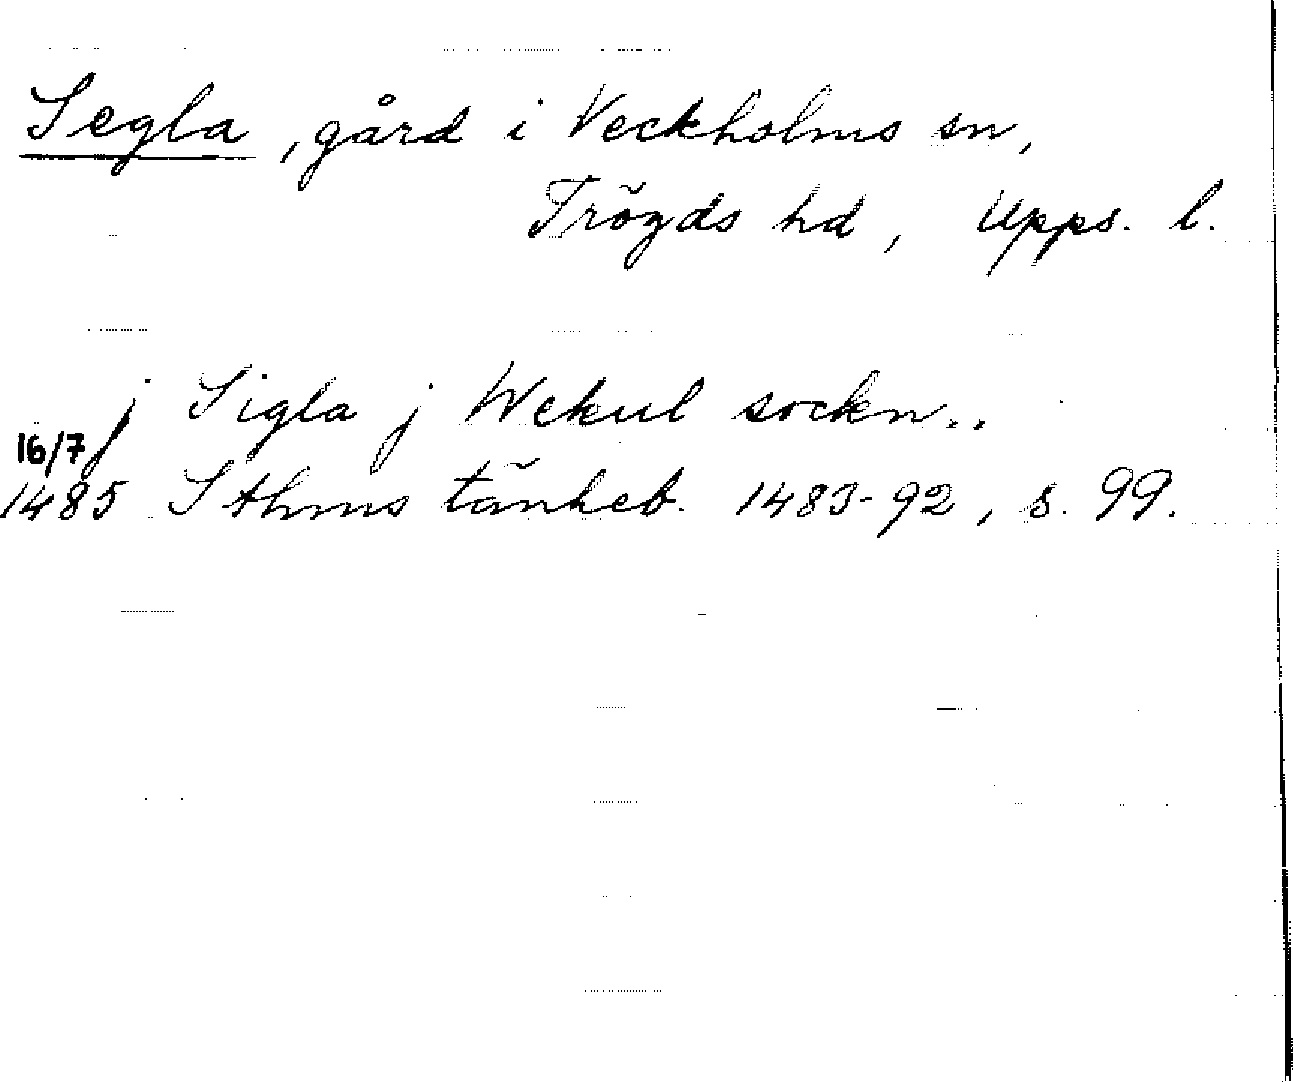 Segla, gård i Veckholms sn,
Trögds hd, Upps. l.
j Sigla j Wekul sockn..
16/7
1485 Sthms tänkeb. 1483-92, s. 99.